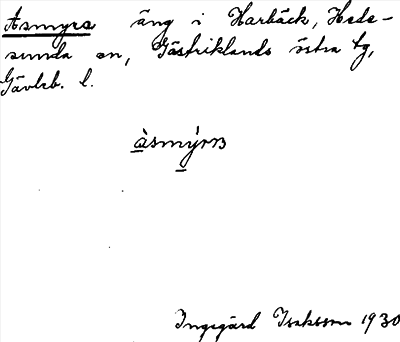 Åsmyra äng i Harbäck, Hede-
sunda sn, Gästriklands östra tg,
Gävleb. l.
àsmýrɐ
Ingegärd Isaksson 1930